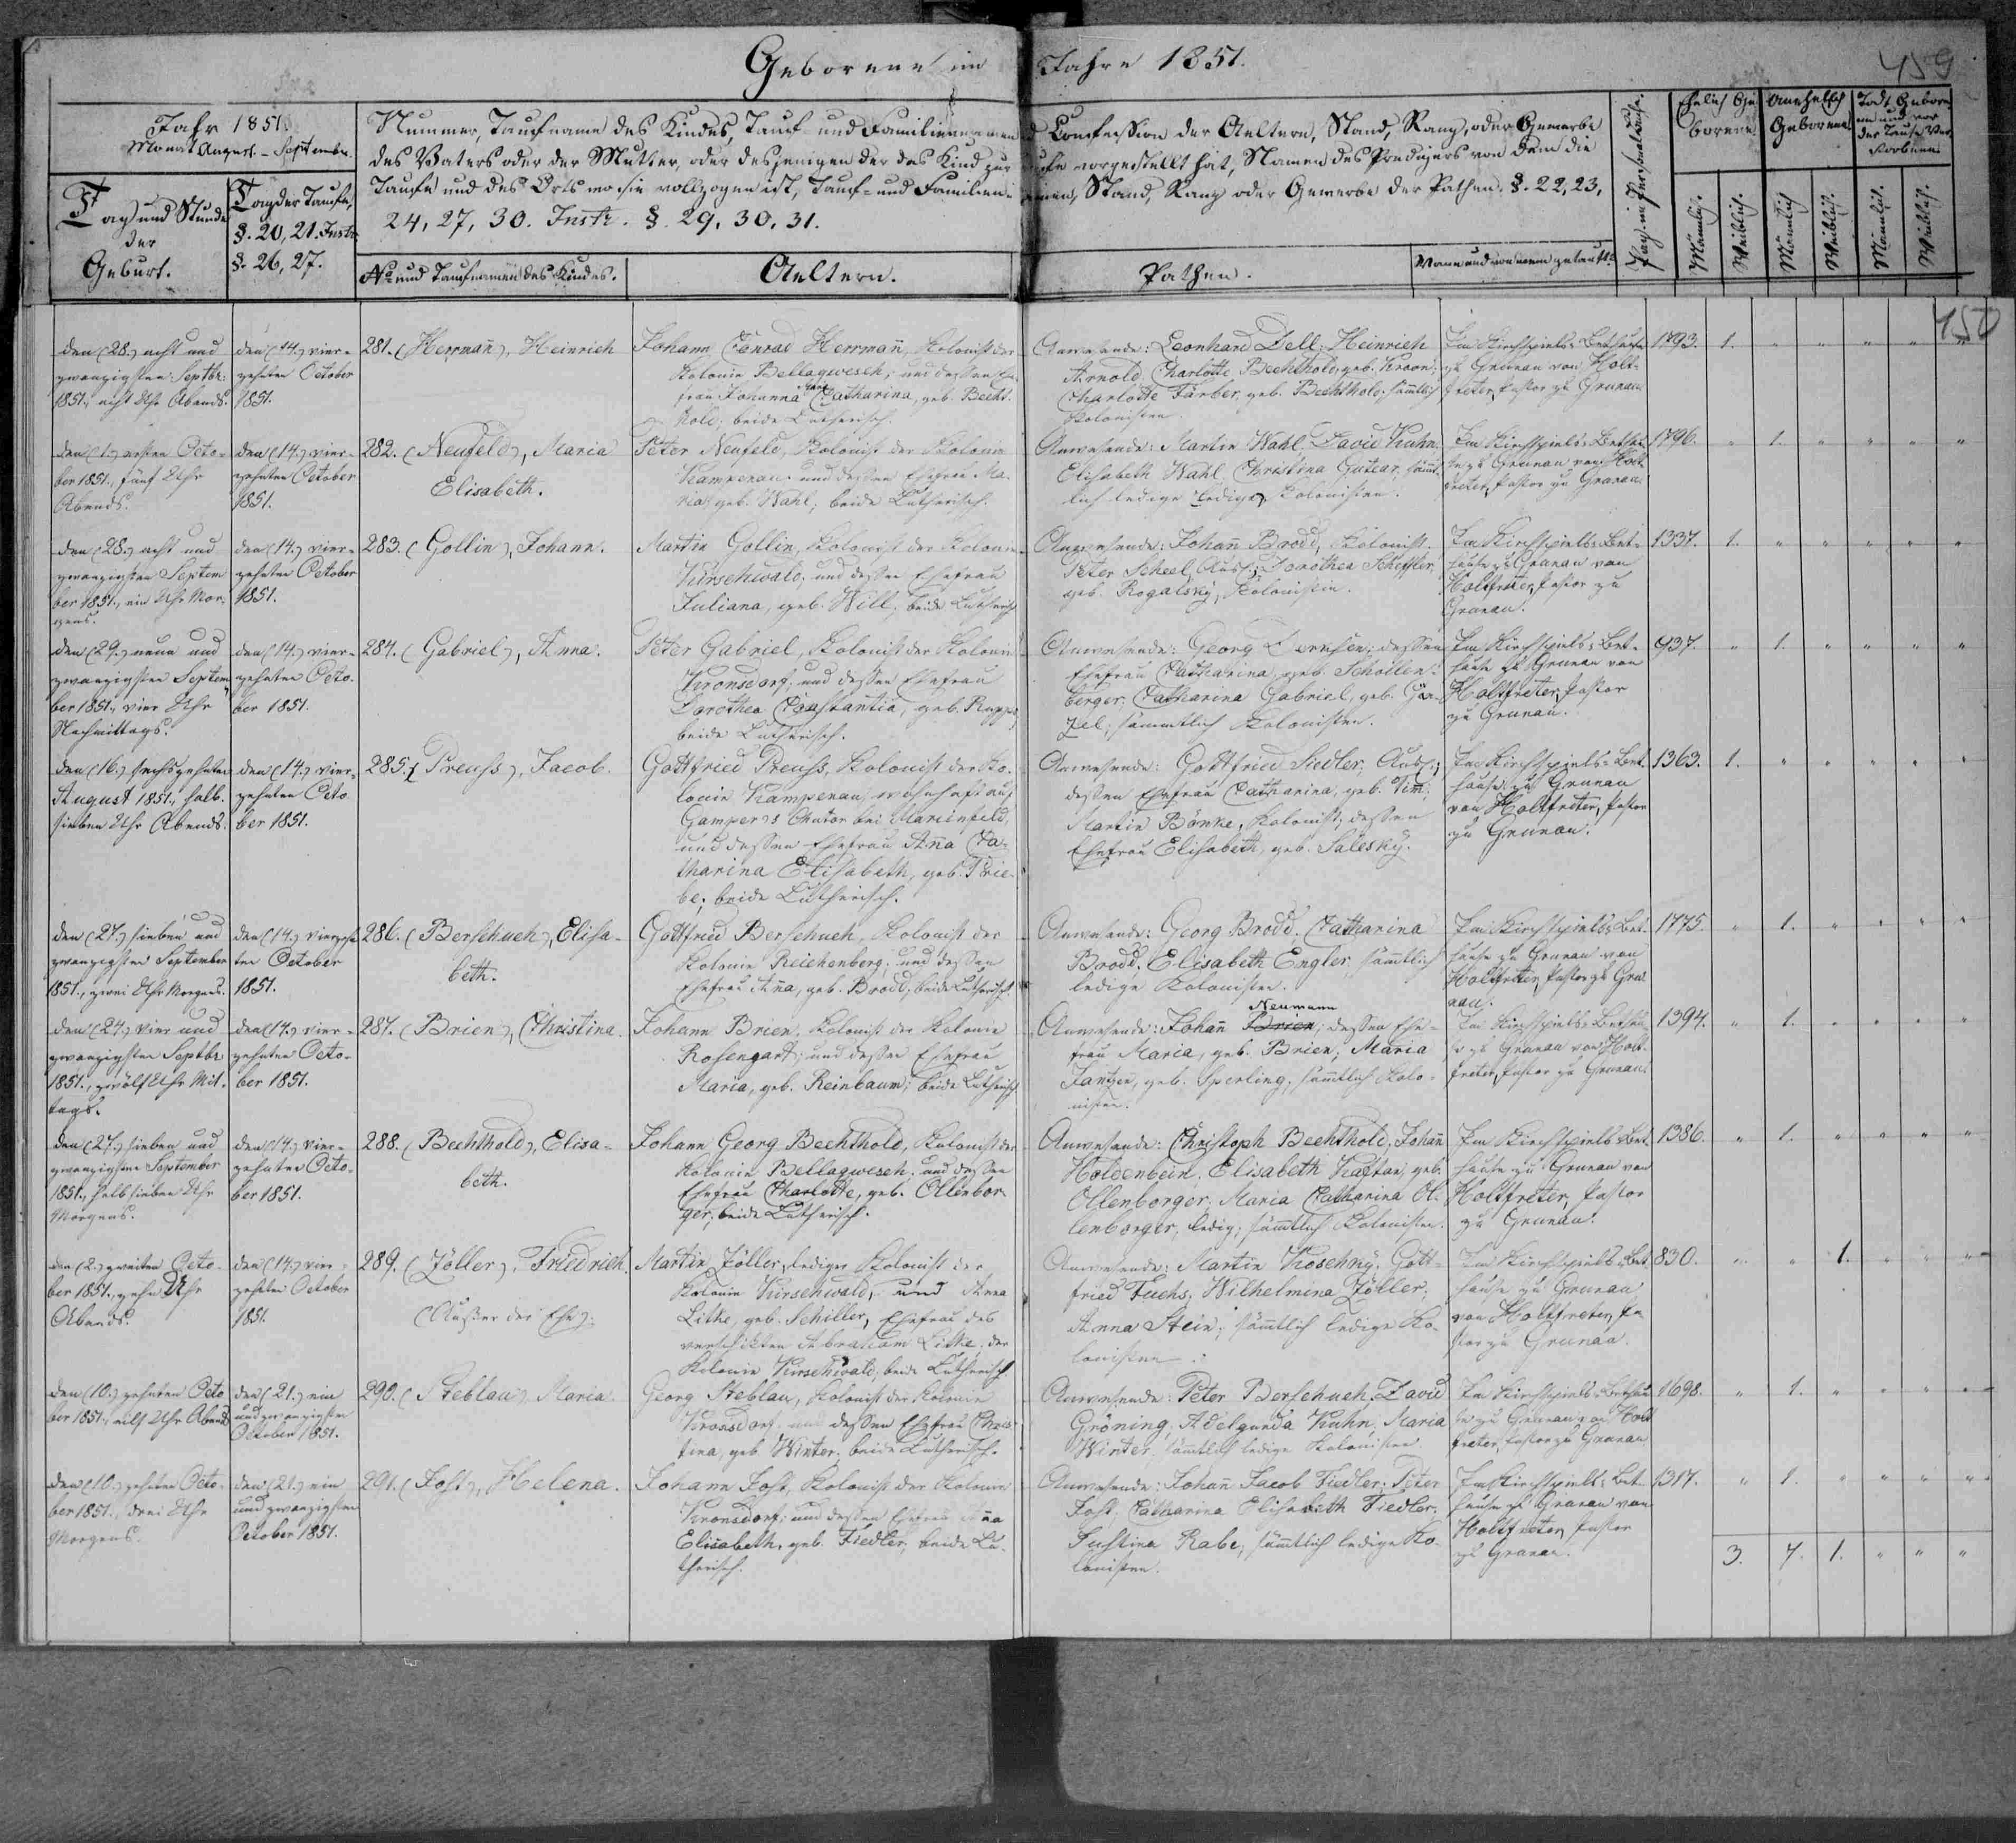 Geborene im Jahre 1851.
459
150
Jahr 1851.
Monat August - September
Tag und Stunde
der
Geburt.
Tag der Taufe,
§. 20, 21. Instr.
§. 26, 27.
Nummer, Taufname des Kindes, Tauf- und Familiennamen
des Vaters oder der Mutter, oder desjenigen der das Kind zur
Taufe und des Orts wo sie vollzogen ist, Tauf- und Familien-
24, 27, 30. Instr. §. 29, 30, 31.
No und Taufnamen des Kindes.
Aeltern.
Confession der Aeltern, Stand, Rang, oder Gewerbe
vorgestellt hat, Namen des Predigers von dem die
Stand, Rang oder Gewerbe der Pathen. §. 22, 23,
Pathen.
Wann und von wem getauft.
Pag. im Personalbuche.
Ehelich Ge-
borene
Unehelich
Geborene
Todt Gebore-
ne und vor
der Taufe Ver-
storbene
Männlich.
Weiblich.
Männlich
Weiblich.
Männlich.
Weiblich.
den (28.) acht und
zwanzigsten Septbr:
1851., acht Uhr Abends.
den (14.) vier-
zehnten October
1851.
281. (Herrmañ), Heinrich
Johann Conrad Herrmañ, Kolonist der
Kolonie Bellagwesch; und dessen Ehe-
frau Johanna Catharina, geb. Becht-
hold; beide Lutherisch.
Anwesende: Leonhard Dell; Heinrich
Arnold, Charlotte Bechthold, geb. Kroon;
Charlotte Färber, geb. Bechthold; sämtlich
Kolonisten.
Im Kirchspiels-Bethause
zu Grunau von Holt-
freter, Pastor zu Grunau.
1793. 1. " " " " "
den (1.) ersten Octo-
ber 1851., fünf Uhr
Abends.
den (14.) vier-
zehnten October
1851.
282. (Neufeld), Maria
Elisabeth.
Peter Neufeld, Kolonist der Kolonie
Kampenau und dessen Ehefrau Ma-
ria, geb. Wahl; beide Lutherisch.
Anwesende: Martin Wahl, David Kuhn,
Elisabeth Wahl, Christina Gutear, sämt-
lich ledige Kolonisten.
Im Kirchspiels-Bethau-
se zu Grunau von Holt-
freter, Pastor zu Grunau.
1796. " 1. " " " "
den (28.) acht und
zwanzigsten Septem
ber 1851., ein Uhr Mor-
gens.
den (14.) vier-
zehnten October
1851.
283. (Gollin), Johann.
Martin Gollin, Kolonist der Kolonie
Kirschwald; und dessen Ehefrau
Juliana, geb. Will; beide Lutherisch
Anwesende: Johañ Brodd, Kolonist.
Peter Scheel, Ausl.; Dorothea Scheffler,
geb. Rogalsky, Kolonistin.
Im Kirchspiels-Bet-
hause zu Grunau von
Holtfreter, Pastor zu
Grunau.
1337. 1. " " " " "
den (29.) neun und
zwanzigsten Septem
ber 1851., vier Uhr
Nachmittags.
den (14.) vier-
zehnten Octo-
ber 1851.
284. (Gabriel), Anna.
Peter Gabriel, Kolonist der Kolonie
Kronsdorf; und dessen Ehefrau
Dorothea Constantia, geb. Rapp;
beide Lutherisch.
Anwesende: Georg Dernhen; dessen
Ehefrau Catharina, geb. Schollen-
berger; Catharina Gabriel, geb. Gün-
zel; sämmtlich Kolonisten.
Im Kirchspiels-Bet-
hause zu Grunau von
Holtfreter, Pastor
zu Grunau.
937. " 1. " " " "
den (16.) sechszehnten
August 1851., halb
sieben Uhr Abends.
den (14.) vier-
zehnten Octo
ber 1851.
285. (Preuss), Jacob.
Gottfried Preuss, Kolonist der Ko-
lonie Kampenau, wohnhaft auf
Gamper's Chutor bei Marienfeld,
und dessen Ehefrau Aña Ca-
tharina Elisabeth, geb. Prie-
be; beide Lutherisch.
Anwesende: Gottfried Siedler, Ausl.;
dessen Ehefrau Catharina, geb. Tim;
Martin Bönke, Kolonist; dessen
Ehefrau Elisabeth, geb. Salesky.
Im Kirchspiels-Bet
hause zu Grunau
von Holtfreter, Pastor
zu Grunau.
1363. 1. " " " " "
den (27.) sieben und
zwanzigsten September
1851., zwei Uhr Morgens.
den (14.) vierzehn
ten October
1851.
286. (Berschuch), Elisa-
beth.
Gottfried Berschuch, Kolonist der
Kolonie Reichenberg; und dessen
Ehefrau Aña, geb. Brodd; beide Lutherisch.
Anwesende: Georg Brodd, Catharina
Brodd, Elisabeth Engler, sämtlich
ledige Kolonisten.
Im Kirchspiels-Bet-
hause zu Grunau von
Holtfreter, Pastor zu Gru-
nau.
1775. " 1. " " " "
den (24.) vier und
zwanzigsten Septbr:
1851., zwölf Uhr Mit-
tags.
den (14.) vier-
zehnten Octo-
ber 1851.
287. (Brien), Christina.
Johann Brien, Kolonist der Kolonie
Rosengart; und dessen Ehefrau
Maria, geb. Reinbaum; beide Lutherisch
Neumann
Anwesende: Johañ Brien; dessen Ehe-
frau Maria, geb. Brien; Maria
Jantzen, geb. Sperling; sämtlich Kolo-
nisten.
Im Kirchspiels-Bethau-
se zu Grunau von Holt-
freter, Pastor zu Grunau.
1394. " 1. " " " "
den (27.) sieben und
zwanzigsten September
1851., halb sieben Uhr
Morgens.
den (14.) vier-
zehnten Octo-
ber 1851.
288. (Bechthold), Elisa-
beth.
Johann Georg Bechthold, Kolonist der
Kolonie Bellagwesch; und dessen
Ehefrau Charlotte, geb. Ollenbor-
ger; beide Lutherisch.
Anwesende: Christoph Bechthold, Johañ
Holdenbein, Elisabeth Kaftan, geb.
Ollenborger, Maria Catharina Ol-
lenborger, ledig; sämtlich Kolonisten.
Im Kirchspiels-Bet
hause zu Grunau von
Holtfreter, Pastor
zu Grunau.
1386. " 1. " " " "
den (2.) zweiten Octo-
ber 1851., zehn Uhr
Abends.
den (14.) vier-
zehnten October
1851.
289. (Zöller), Friedrich.
(Außer der Ehe).
Martin Zöller, lediger Kolonist der
Kolonie Kirschwald, und Anna
Litke, geb. Schiller, Ehefrau des
verschickten Abraham Litke, der
Kolonie Kirschwald; beide Lutherisch
Anwesende: Martin Koschny, Gott-
fried Fuchs, Wilhelmina Zöller,
Anna Stein; sämtlich ledige Ko-
lonisten.
Im Kirchspiels-Bet
hause zu Grunau
von Holtfreter, Pa-
stor zu Grunau.
830. " " 1. " " "
den (10.) zehnten Octo
ber 1851., elf Uhr Abends
den (21.) ein
und zwanzigsten
October 1851.
290. (Steblau), Maria
Georg Steblau, Kolonist der Kolonie
Kronsdorf und dessen Ehefrau Chris-
tina, geb. Winter; beide Lutherisch.
Anwesende: Peter Berschuch, David
Gröning, Adelgunda Kuhn, Maria
Winter, sämtlich ledige Kolonisten.
Im Kirchspiels-Bethau
se zu Grunau von Holt
freter, Pastor zu Grunau
1698. " 1. " " " "
den (10.) zehnten Octo-
ber 1851., drei Uhr
Morgens.
den (21.) ein
und zwanzigsten
October 1851.
291. (Jost), Helena.
Johann Jost, Kolonist der Kolonie
Kronsdorf; und dessen Ehefrau Aña
Elisabeth, geb. Fiedler; beide Lu-
therisch.
Anwesende: Johañ Jacob Fiedler; Peter
Jost, Catharina Elisabeth Fiedler,
Justina Rabe, sämtlich ledige Ko-
lonisten.
Im Kirchspiels-Bet-
hause zu Grunau von
Holtfreter, Pastor
zu Grunau.
1317. " 1. " " " "
3. 7. 1. " " "